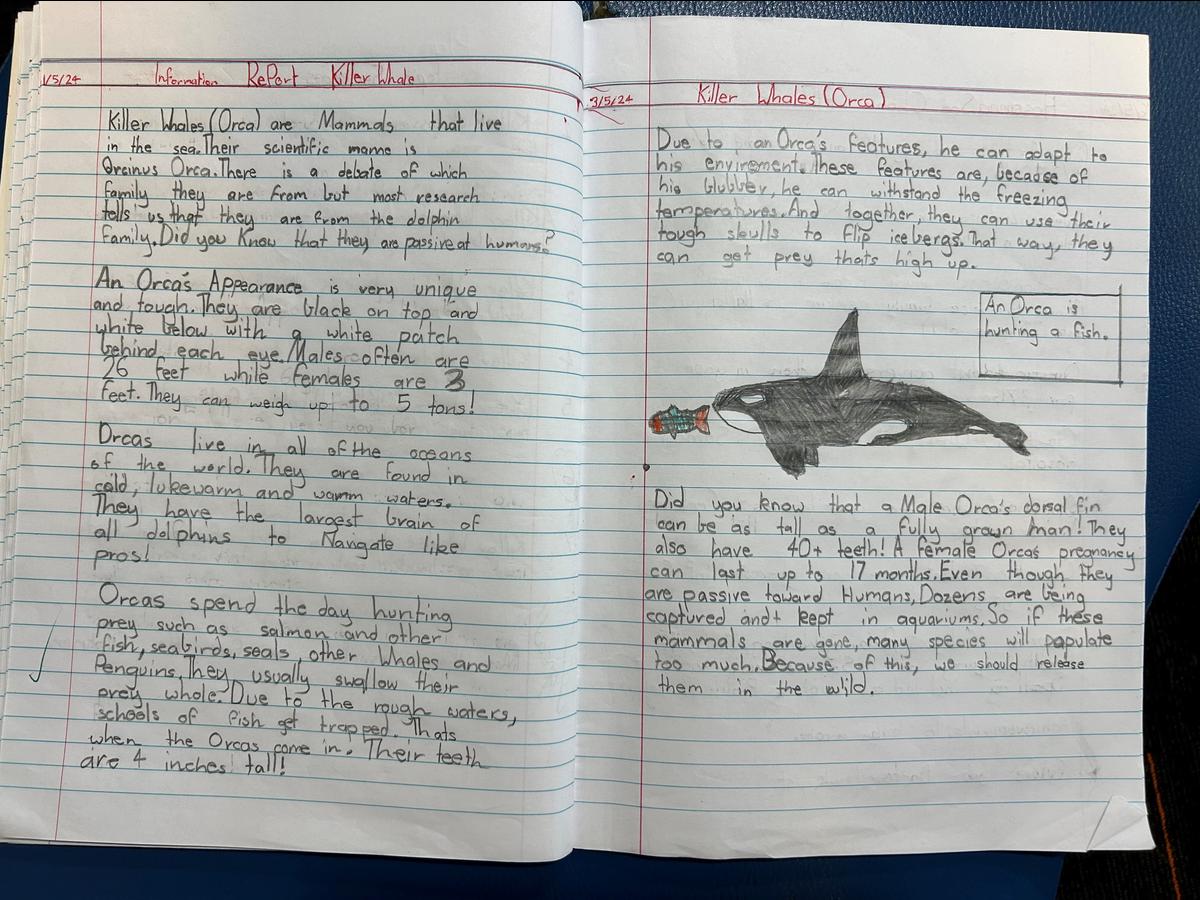 1/5/24 Information RePort Killer Whale
Killer Whales (Orca) are Mammals that live
in the sea. Their scientific mame is
Orcinus Orca. There is a debate of which
family they are from but most research
tells us that they are from the dolphin
family. Did you know that they are passive at humans?
An Orca's Appearance is very unique
and tough. They are black on top and
white below with a white patch
behind each eye. Males often are
26 feet while females are 3
feet. They can weigh up to 5 tons!
Orcas live in all of the oceans
of the world. They are found in
cold, lukewarm and warm waters.
They have the largest brain of
all dolphins to Navigate like
pros!
Orcas spend the day hunting
prey such as salmon and other
fish, seabirds, seals, other Whales and
Penguins. They usually swallow their
prey whole. Due to the rough waters,
schools of fish get trapped. Thats
when the Orcas come in. Their teeth
are 4 inches tall!
3/5/24 Killer Whales (Orca)
Due to an Orca's features, he can adapt to
his enviroment. These features are, becadse of
his blubber, he can withstand the freezing
temperatures. And together, they can use their
tough skulls to flip icebergs. That way, they
can get prey thats high up.
An Orca is
hunting a fish.
Did you know that a Male Orca's dorsal fin
can be as tall as a fully grown man! They
also have 40+ teeth! A female Orcas pregnancy
can last up to 17 months. Even though they
are passive toward Humans, Dozens are being
captured and kept in aquariums. So if these
mammals are gone, many species will populate
too much. Because of this, we should release
them in the wild.